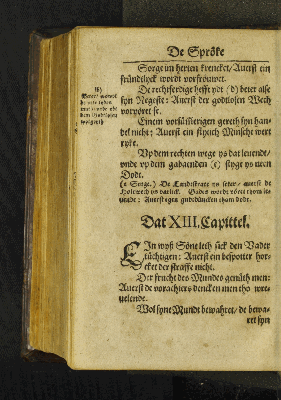 De Spröke
Sorge im herten krencket/ Auerst ein
fründtlyck wordt vorfrouwet.
De rechtferdige hefft ydt (d) beter alse
syn Negeste: Auerst der godtlosen Wech
vorvöret se.
Einem vorsümigen geredt syn han-
del nicht: Auerst ein flytich Minsche wert
ryke.
Vp dem rechten wege ys dat leuendt/
vnde vp dem gebaenden (e) styge ys neen
Dodt.
(e Stige.) De Landtstrate ys seker/ auerst de
Holtwech ys varlick. Gades wordt vöret thom le-
uende: Auerst egen gudtdüncken thom dode.
Dat XIII. Capittel.
EIn wyß Söne leth sick den Vader
tüchtigen: Auerst ein bespotter hör-
cket der straffe nicht.
Der frucht des Mundes genüth men:
Auerst de vorachters dencken men tho wre-
uelende.
Wol syne Mundt bewahret/ de bewa-
ret syn